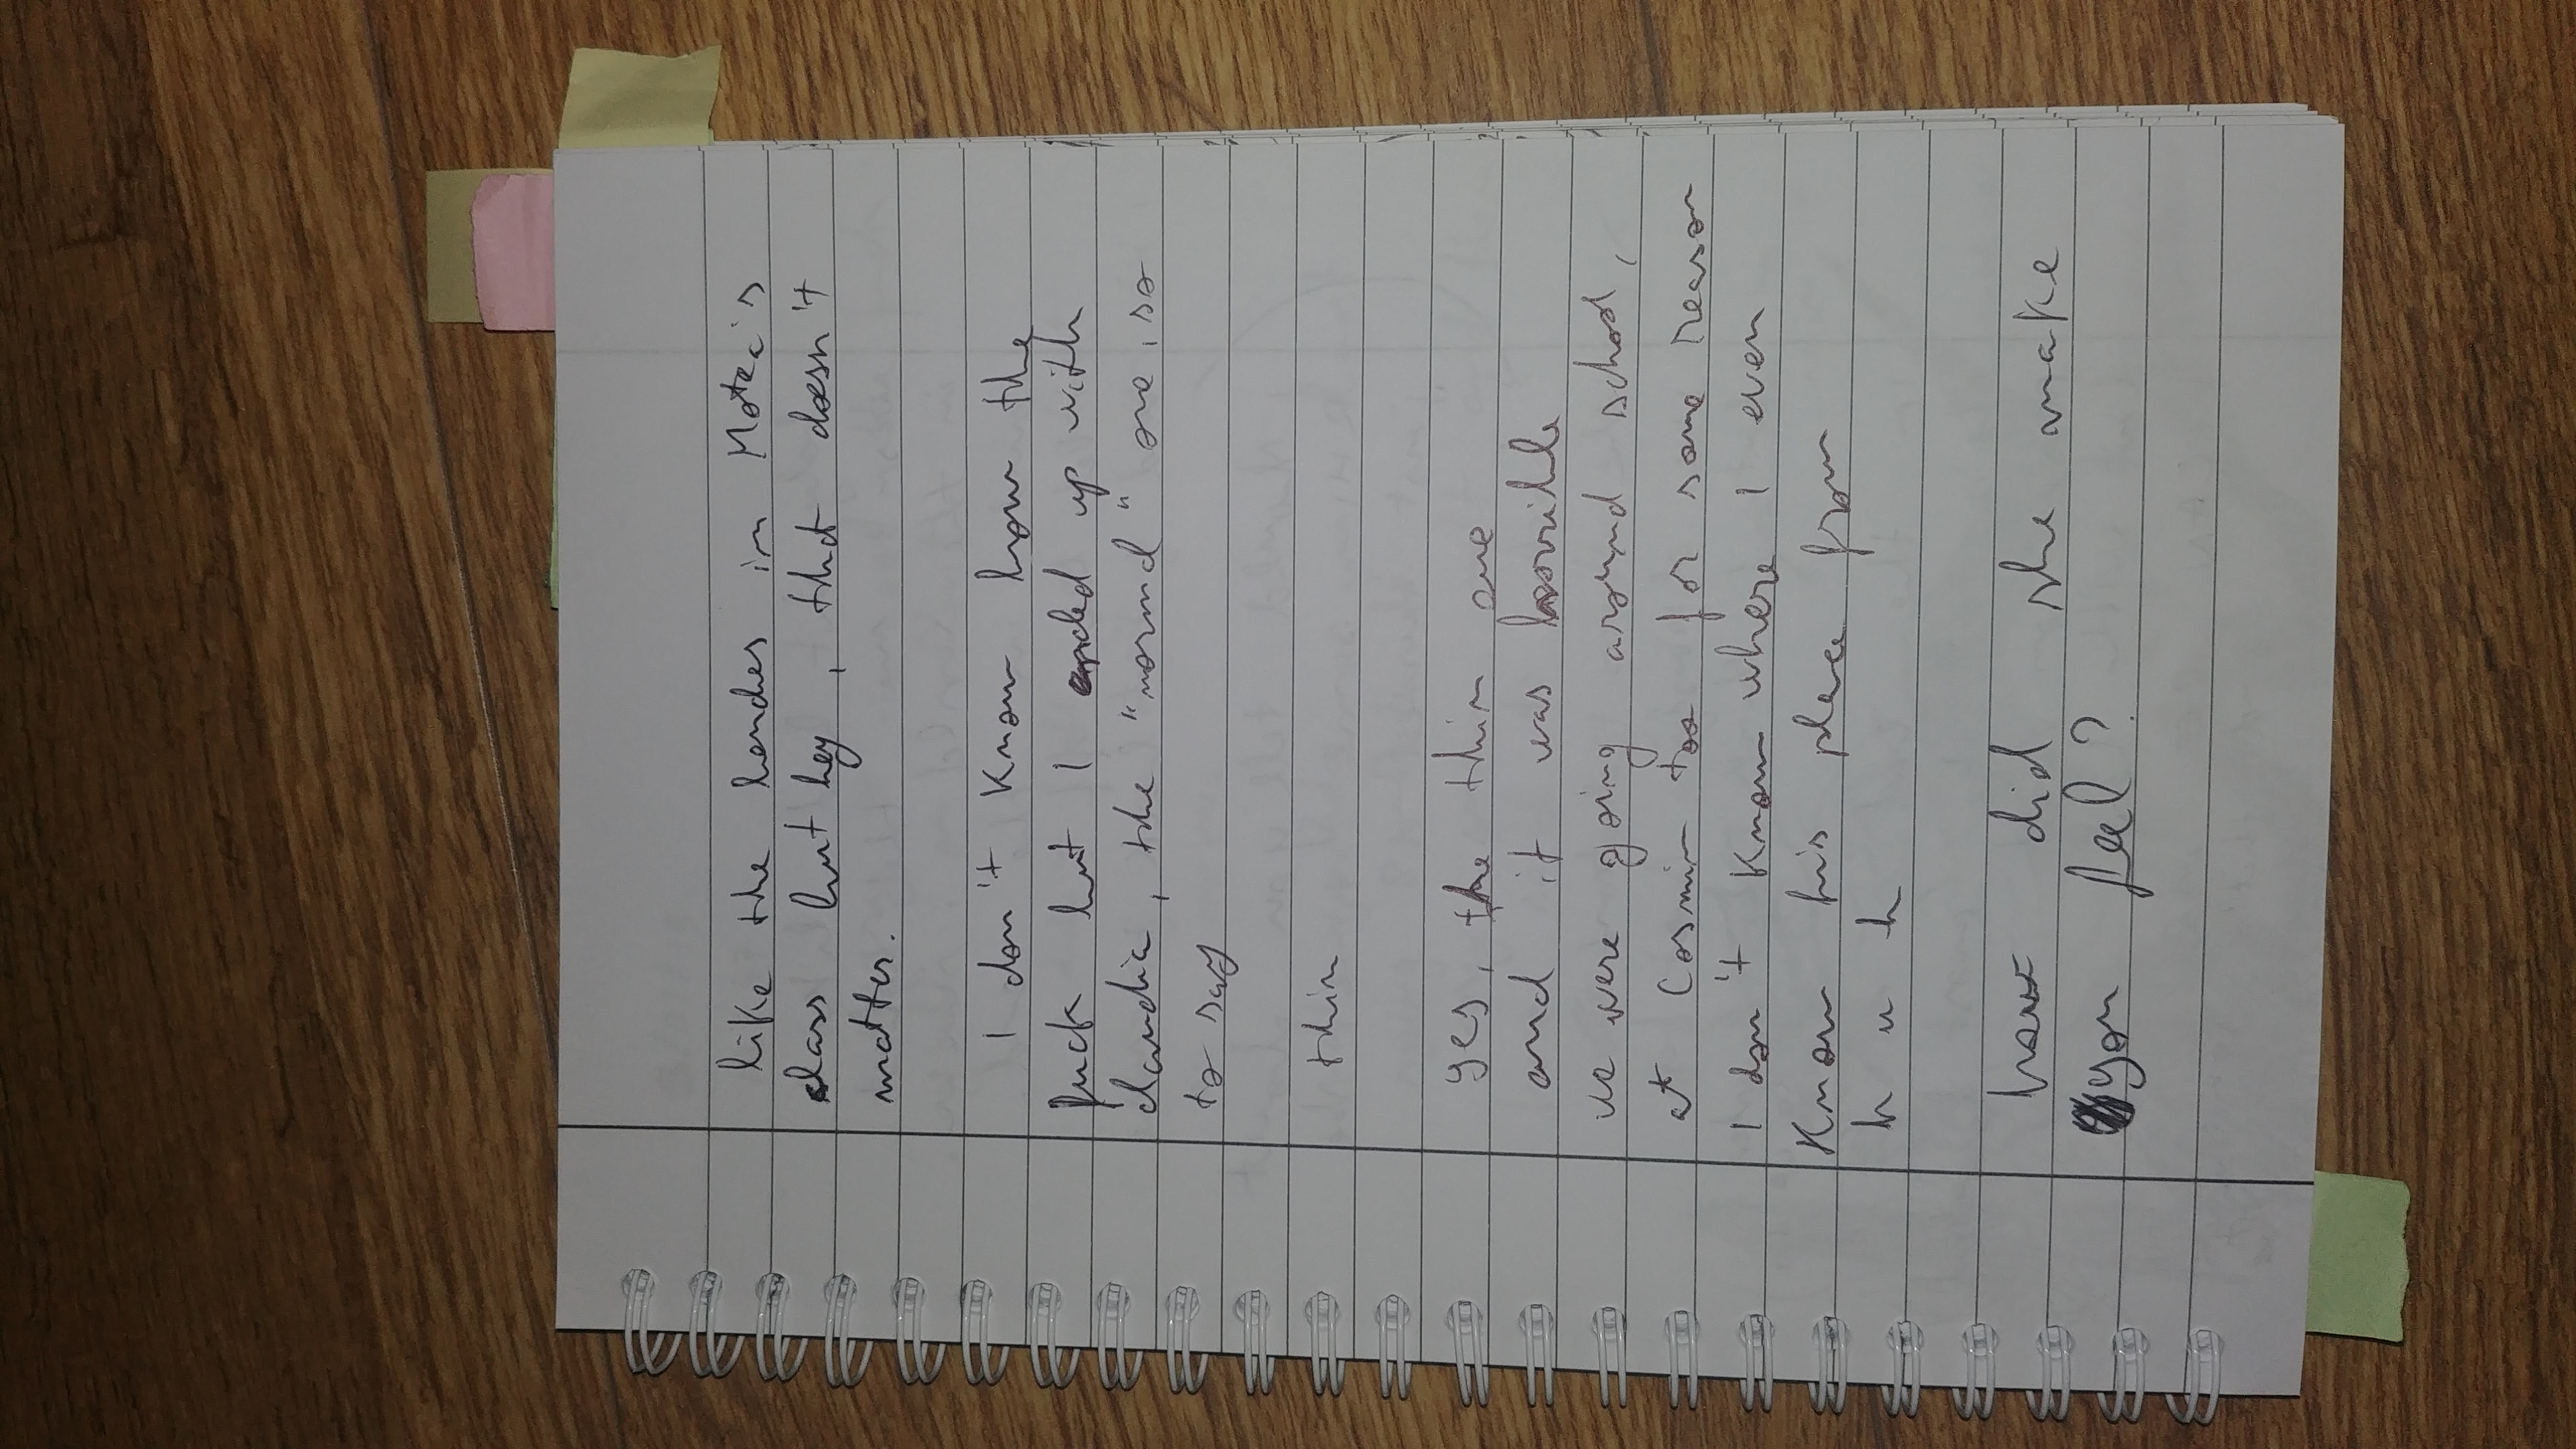 like the benches in Motea's
class but hey, that doesn't
matter.
I don't know how the
fuck but I ended up with
claudia, the "normal" one, so
to say
thin
yes, the thin one
and it was horrible
we were going around school,
at Cosmin too for some reason
I don't know where I even
know his place from
h u h
how did she make
you feel?